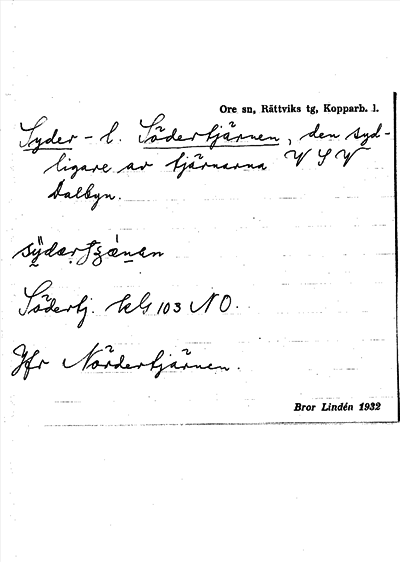 Ore sn, Rättviks tg, Kopparb. l.
Syder- l. Södertjärnen, den syd-
ligare av tjärnarna V S V
Dalbyn.
Södertj. kbl 103 NO.
Jfr Nördertjärnen.
Bror Lindén 1932